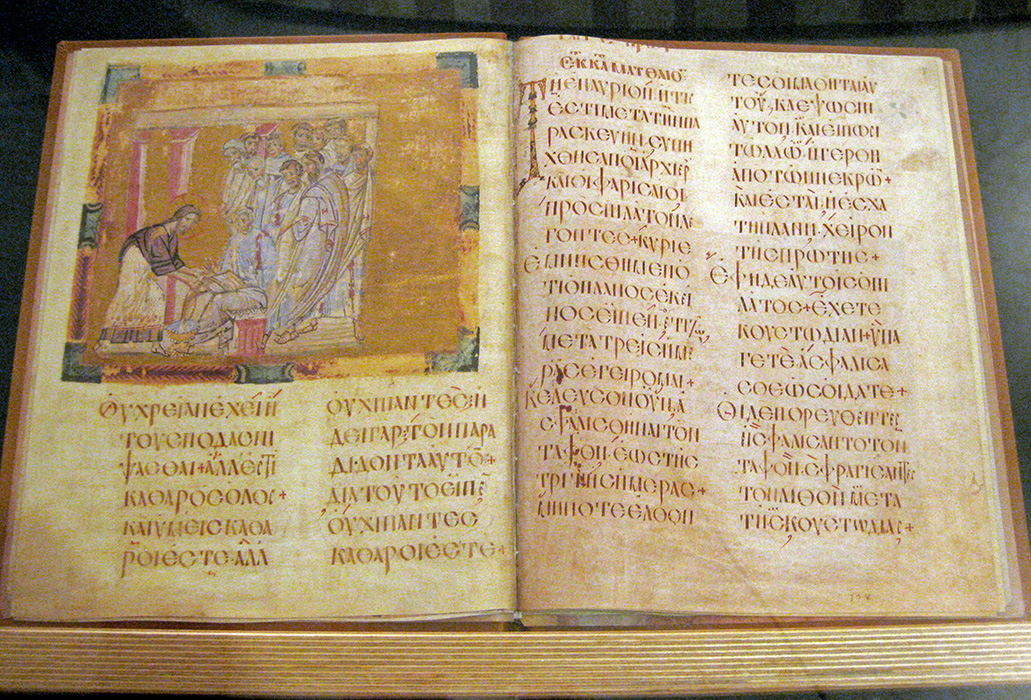 ΟΥΧΡΕΙΑΝΕΧΕΙ Η
ΤΟΥϹΠΟΔΑϹΝΙ
ΨΑϹΘΑΙ·ΑΛΛΕϹΤΙ
ΚΑΘΑΡΟϹΟΛΟϹ+
ΚΑΙΥΜΕΙϹΚΑΘΑ
ΡΟΙΕϹΤΕ·ΑΛΛ
ΟΥΧΙΠΑΝΤΕϹ·Η
ΔΕΙΓΑΡΤΟΝΠΑΡΑ
ΔΙΔΟΝΤΑΑΥΤΟ+
ΔΙΑΤΟΥΤΟΕΙΠΕ
ΟΥΧΙΠΑΝΤΕϹ
ΚΑΘΑΡΟΙΕϹΤΕ+
ΕΚΚΑΜΑΤΘΑΙΟ
ΤΗΕΠΑΥΡΙΟΝ·ΗΤΙϹ
ΕϹΤΙΜΕΤΑΤΗΝΠΑ
ΡΑϹΚΕΥΗΝ·ϹΥΝΗ
ΧΘΗϹΑΝΟΙΑΡΧΙΕΡ
ΚΑΙΟΙΦΑΡΙϹΑΙΟΙ
ΠΡΟϹΠΙΛΑΤΟΝΛΕ
ΓΟΝΤΕϹ+ΚΥΡΙΕ
ΕΜΝΗϹΘΗΜΕΝΟ
ΤΙΟΠΛΑΝΟϹΕΚΕΙ
ΝΟϹΕΙΠΕΝ·ΕΤΙΖΩ
ΜΕΤΑΤΡΕΙϹΗΜΕ
ΡΑϹΕΓΕΙΡΟΜΑΙ+
ΚΕΛΕΥϹΟΝΟΥΝΑ
ϹΦΑΛΙϹΘΗΝΑΙΤΟΝ
ΤΑΦΟΝ·ΕΩϹΤΗϹ
ΤΡΙΤΗϹΗΜΕΡΑϹ+
ΜΗΠΟΤΕΕΛΘΟΝ
ΤΕϹΟΙΜΑΘΗΤΑΙΑΥ
ΤΟΥ·ΚΛΕΨΩϹΙΝ
ΑΥΤΟΝ·ΚΑΙΕΙΠΩΝ
ΤΩΛΑΩ·ΗΓΕΡΘΗ
ΑΠΟΤΩΝΝΕΚΡΩ+
ΚΑΙΕϹΤΑΙΗΕϹΧΑ
ΤΗΠΛΑΝΗ·ΧΕΙΡΩΝ
ΤΗϹΠΡΩΤΗϹ+
ΕΦΗΔΕΑΥΤΟΙϹΟΠΙ
ΛΑΤΟϹ+ΕΧΕΤΕ
ΚΟΥϹΤΩΔΙΑΝ+ΥΠΑ
ΓΕΤΕΑϹΦΑΛΙϹΑ
ϹΘΕΩϹΟΙΔΑΤΕ+
ΟΙΔΕΠΟΡΕΥΘΕΝΤΕϹ
ΗϹΦΑΛΙϹΑΝΤΟΤΟΝ
ΤΑΦΟΝ·ϹΦΡΑΓΙϹΑΝΤΕϹ
ΤΟΝΛΙΘΟΝΜΕΤΑ
ΤΗϹΚΟΥϹΤΩΔΙΑϹ+